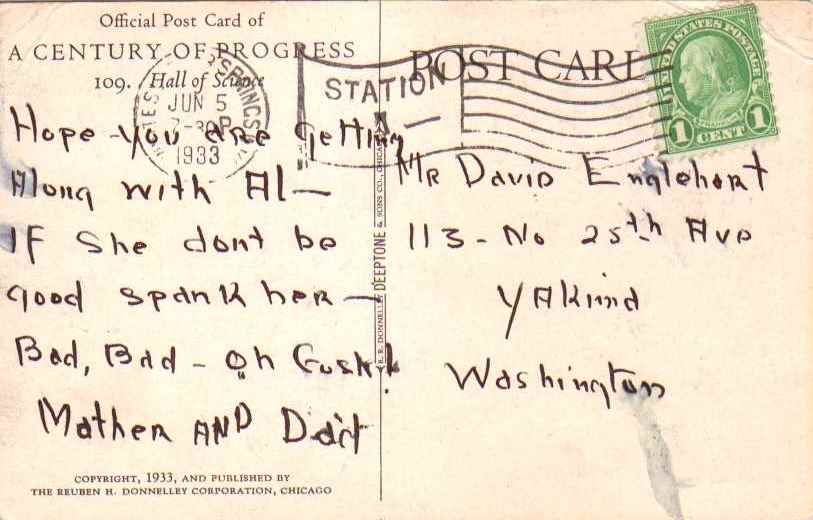 Official Post Card of
A CENTURY OF PROGRESS
109. Hall of Science
POST CARD
SPRINGS
JUN 5
7-30P
1933
STATION
UNITED STATES POSTAGE
1 CENT 1
Hope you are getting
Along with Al—
If She dont be
good spank her—
Bad, Bad - Oh Gosh!
Mother AND Dad
DEEPTONE
R. R. DONNELLEY & SONS CO., CHICAGO
Mr David Englehart
113 - No 25th Ave
Yakima
Washington
COPYRIGHT, 1933, AND PUBLISHED BY
THE REUBEN H. DONNELLEY CORPORATION, CHICAGO